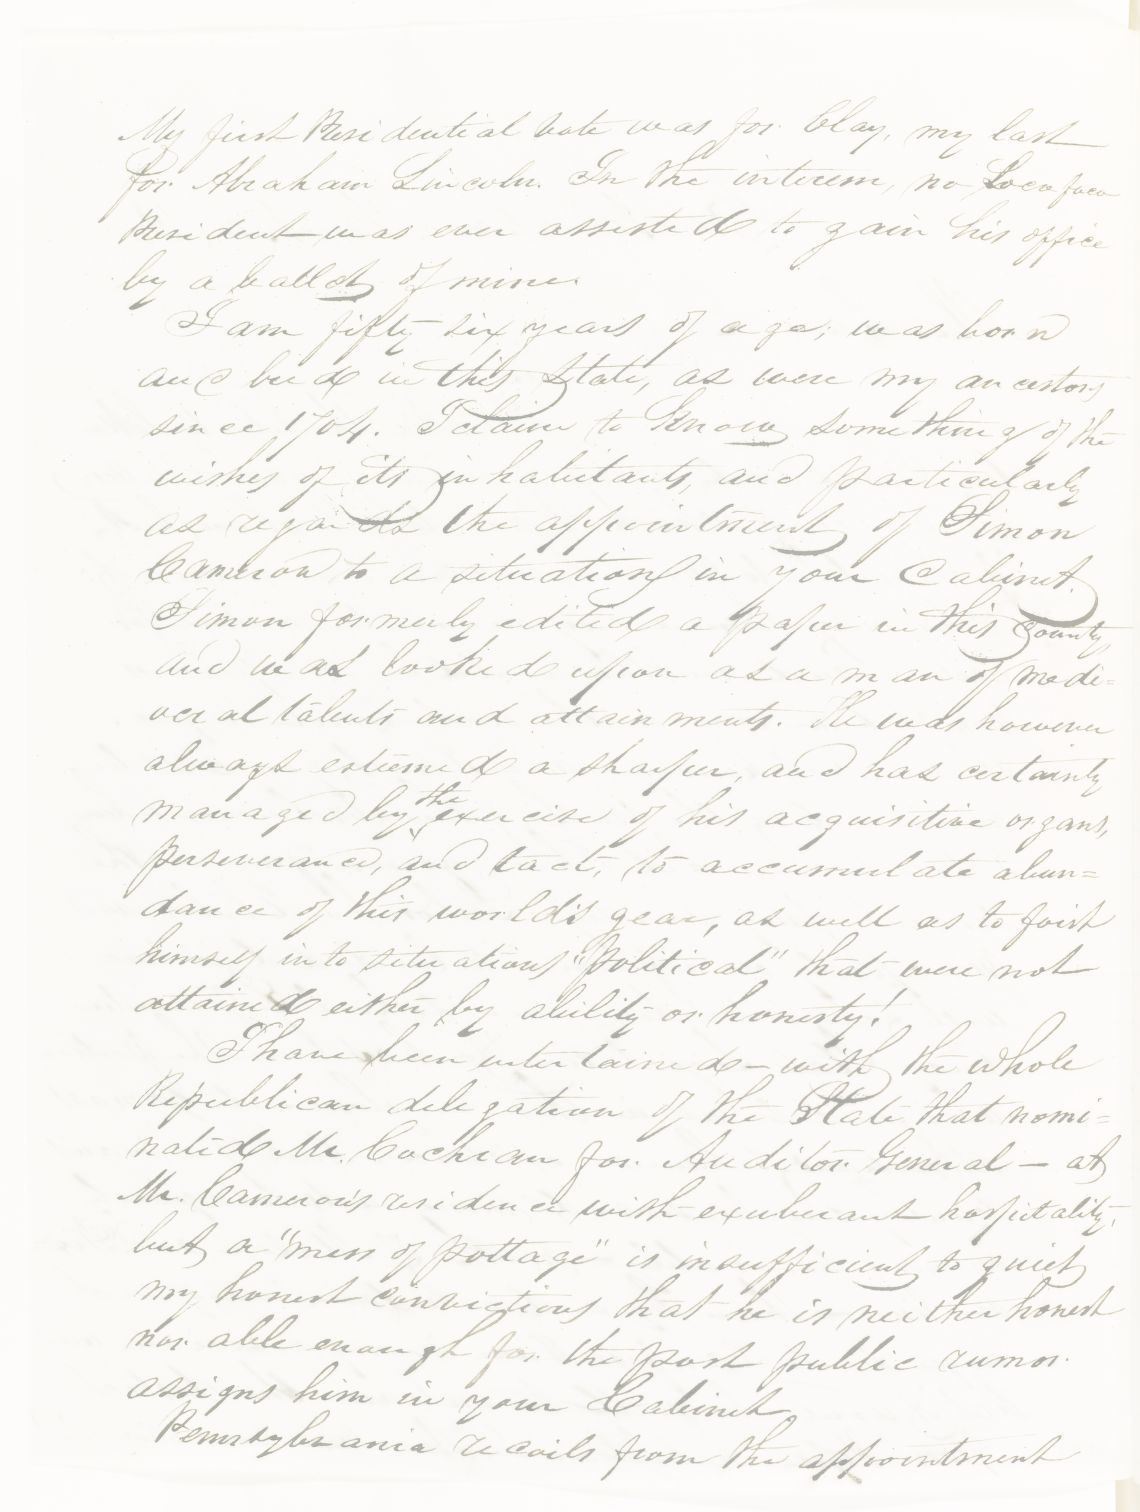 My first Presidential vote was for Clay, my last
for Abraham Lincoln. In the interim, no Locofoco
President was ever assisted to gain his office
by a ballot of mine.
I am fifty six years of age; was born
and bred in this State, as were my ancestors
since 1704. I claim to know something of the
wishes of its inhabitants, and particularly
as regards the appointment of Simon
Cameron to a situation in your Cabinet.
Simon formerly edited a paper in this County,
and was looked upon as a man of medi=
ocral talents and attainments. He was however
always esteemed a sharper, and has certainly
managed by the exercise of his acquisitive organs,
perseverance, and tact, to accumulate abun=
dance of this world's gear, as well as to foist
himself into situations "political" that were not
attained either by ability or honesty!
I have been entertained – with the whole
Republican delegation of the State that nomi=
nated Mr. Cochran for Auditor General – at
Mr. Cameron's residence with exuberant hospitality,
but a "mess of pottage" is insufficient to quiet
my honest convictions that he is neither honest
nor able enough for the post public rumor
assigns him in your Cabinet
Pennsylvania recoils from the appointment